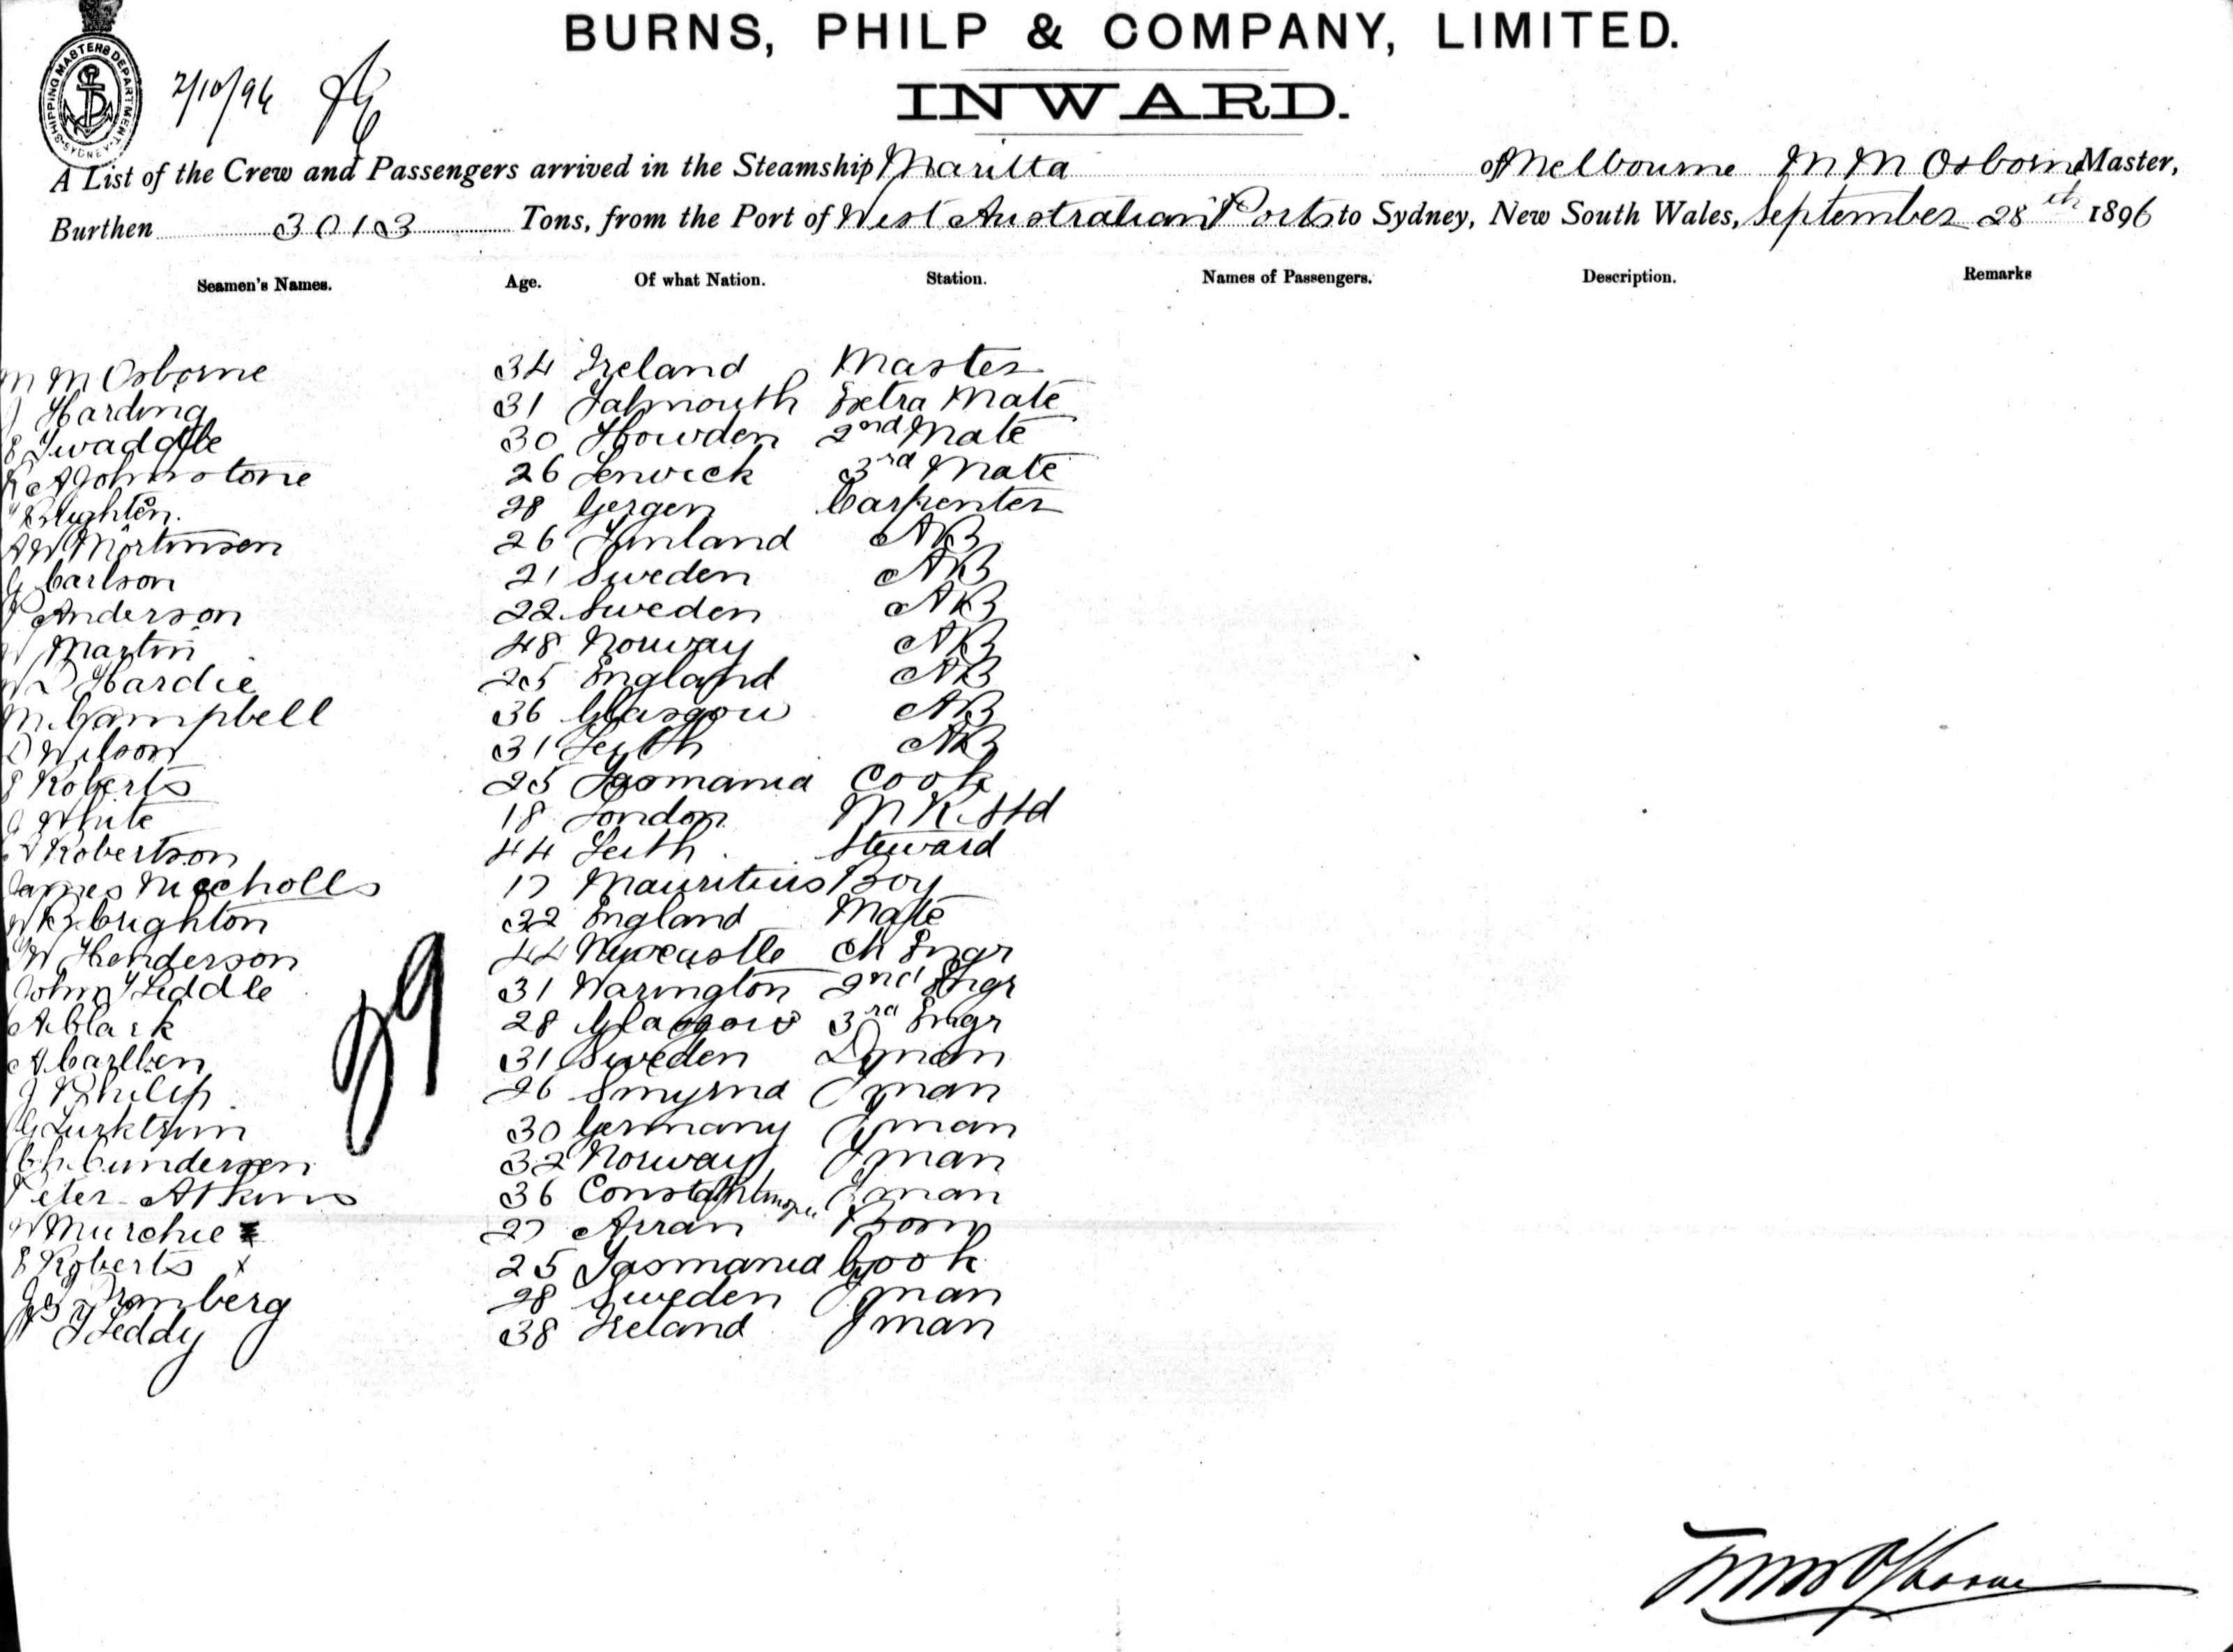 BURNS, PHILP & COMPANY, LIMITED.
SHIPPING MASTERS DEPARTMENT SYDNEY
2/10/96
INWARD.
A List of the Crew and Passengers arrived in the Steamship Marilla of Melbourne M M Osborne Master,
Burthen 3013 Tons, from the Port of West Australian Ports to Sydney, New South Wales, September 28th 1896
Seamen's Names. Age. Of what Nation. Station. Names of Passengers. Description. Remarks
M M Osborne 34 Ireland Master
J Harding 31 Falmouth Extra Mate
E Twaddle 30 Howden 2nd Mate
A Johnstone 26 Lerwick 3rd Mate
28 Carpenter
Mortinsen 26 Finland AB
G Carlson 21 Sweden AB
P Anderson 22 Sweden AB
W Martin 48 Norway AB
W D Hardie 25 England AB
M Campbell 36 Glasgow AB
D Wilson 31 Leith AB
E Roberts 25 Tasmania Cook
J White 18 London M R Std
Robertson 44 Leith Steward
James Niccholls 17 Mauritius Boy
W B Crighton 32 England Mate
W Henderson 44 Newcastle Ch Engr
John Liddle 31 Warington 2nd Engr
A Clark 28 Glasgow 3rd Engr
A Carllsen 31 Sweden Dman
J Philip 26 Smyrna Fman
G 30 Germany Fman
Ch Gundersen 32 Norway Fman
Peter Atkins 36 Constantinople Fman
W Murchie 27 Arran Bosn
E Roberts x 25 Tasmania Cook
28 Sweden Fman
T Leddy 38 Ireland Fman
29
M M Osborne